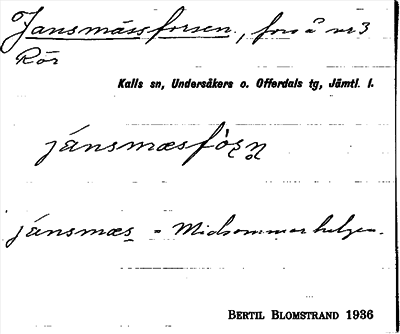 Jansmässforsen., fors å nr 3
Rör
Kalls sn, Undersåkers o. Offerdals tg, Jämtl. l.
jánsmæsfòʂn̥
jánsmæs = Midsommarhelgen.
BERTIL BLOMSTRAND 1936